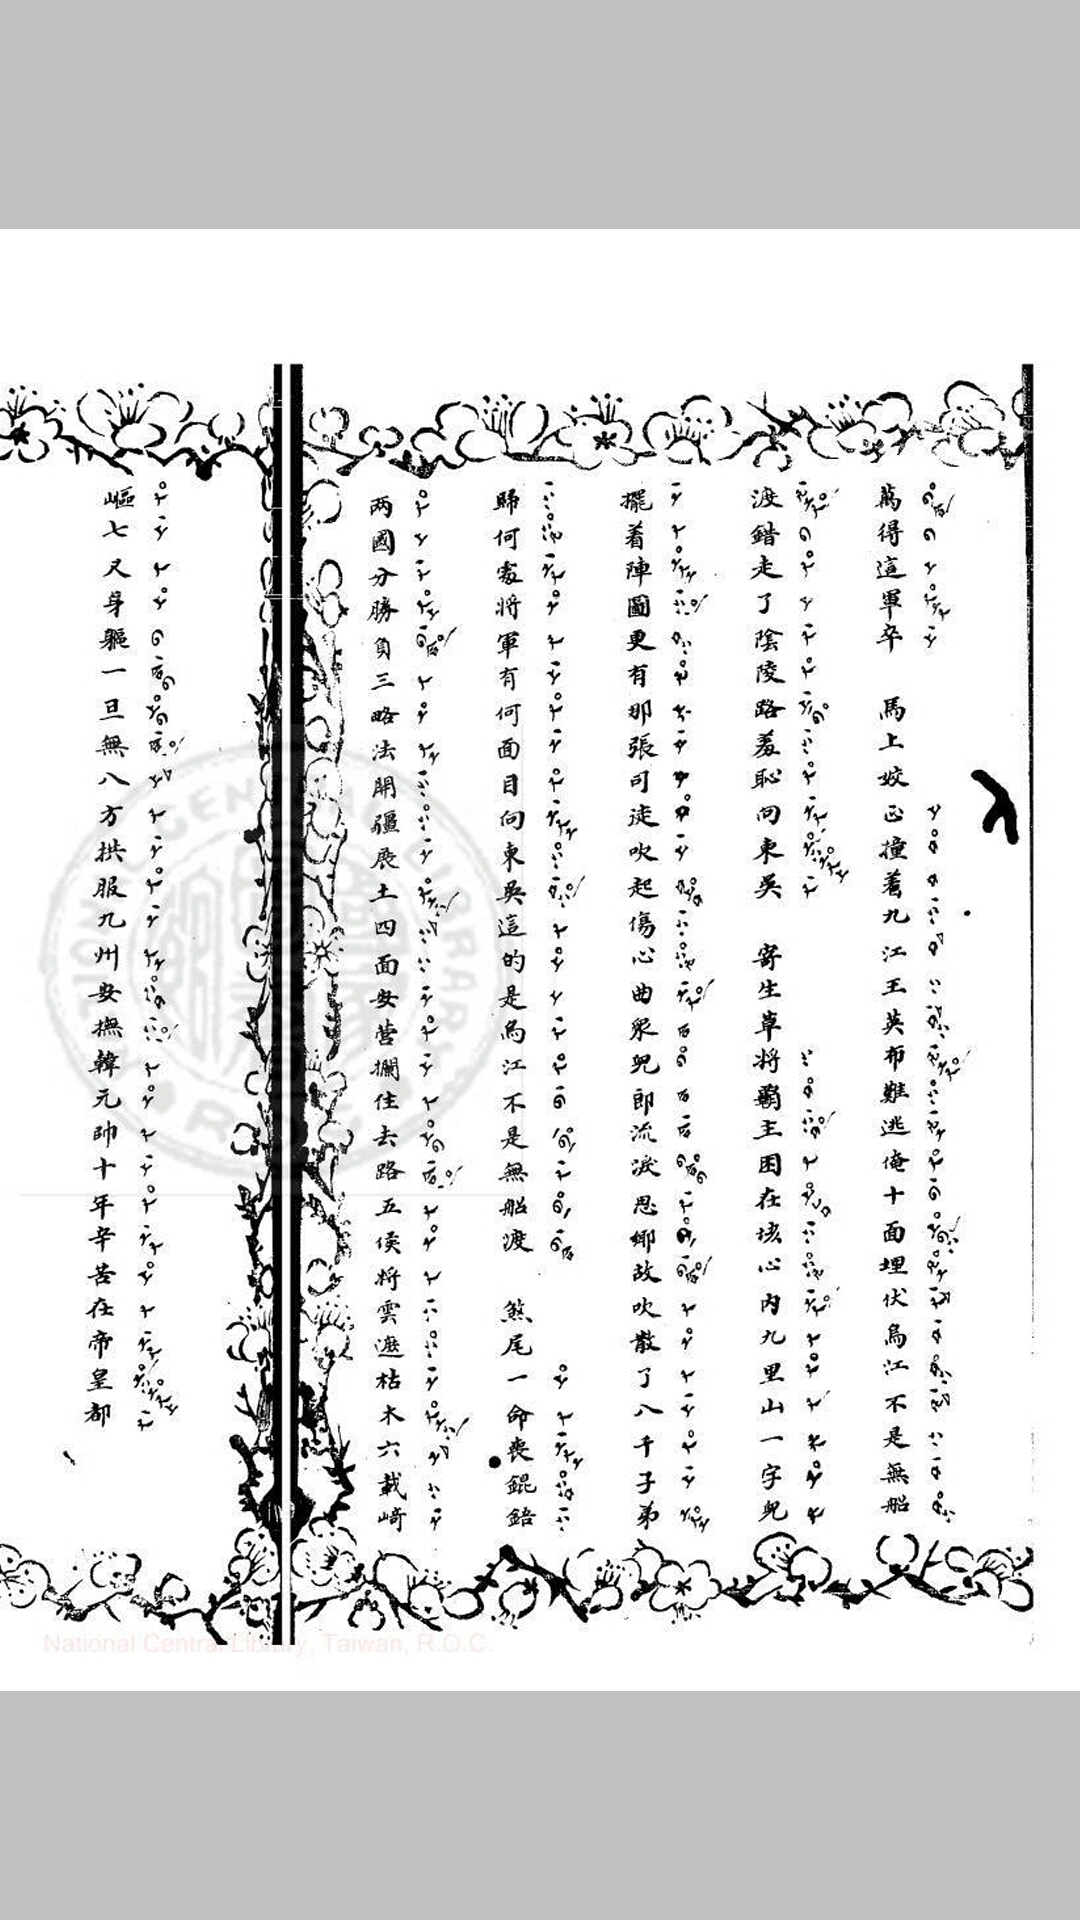 萬得這軍卒　馬上蛟正撞着九江王英布難逃俺十面埋伏烏江不是無船
渡錯走了陰陵路羞恥向東吳　寄生草將霸主困在垓心內九里山一字兒
擺着陣圖更有那張司徒吹起傷心曲眾兒郎流淚思鄉故吹散了八千子弟
歸何處將軍有何面目向東吳這的是烏江不是無船渡　煞尾一命喪錕鋙
两國分勝負三略法開疆展土四面安营攔住去路五侯将雲遮枯木六載﨑
嶇七尺身軀一旦無八方拱服九州安撫韓元帥十年辛苦在帝皇都
National Central Library, Taiwan, R.O.C.